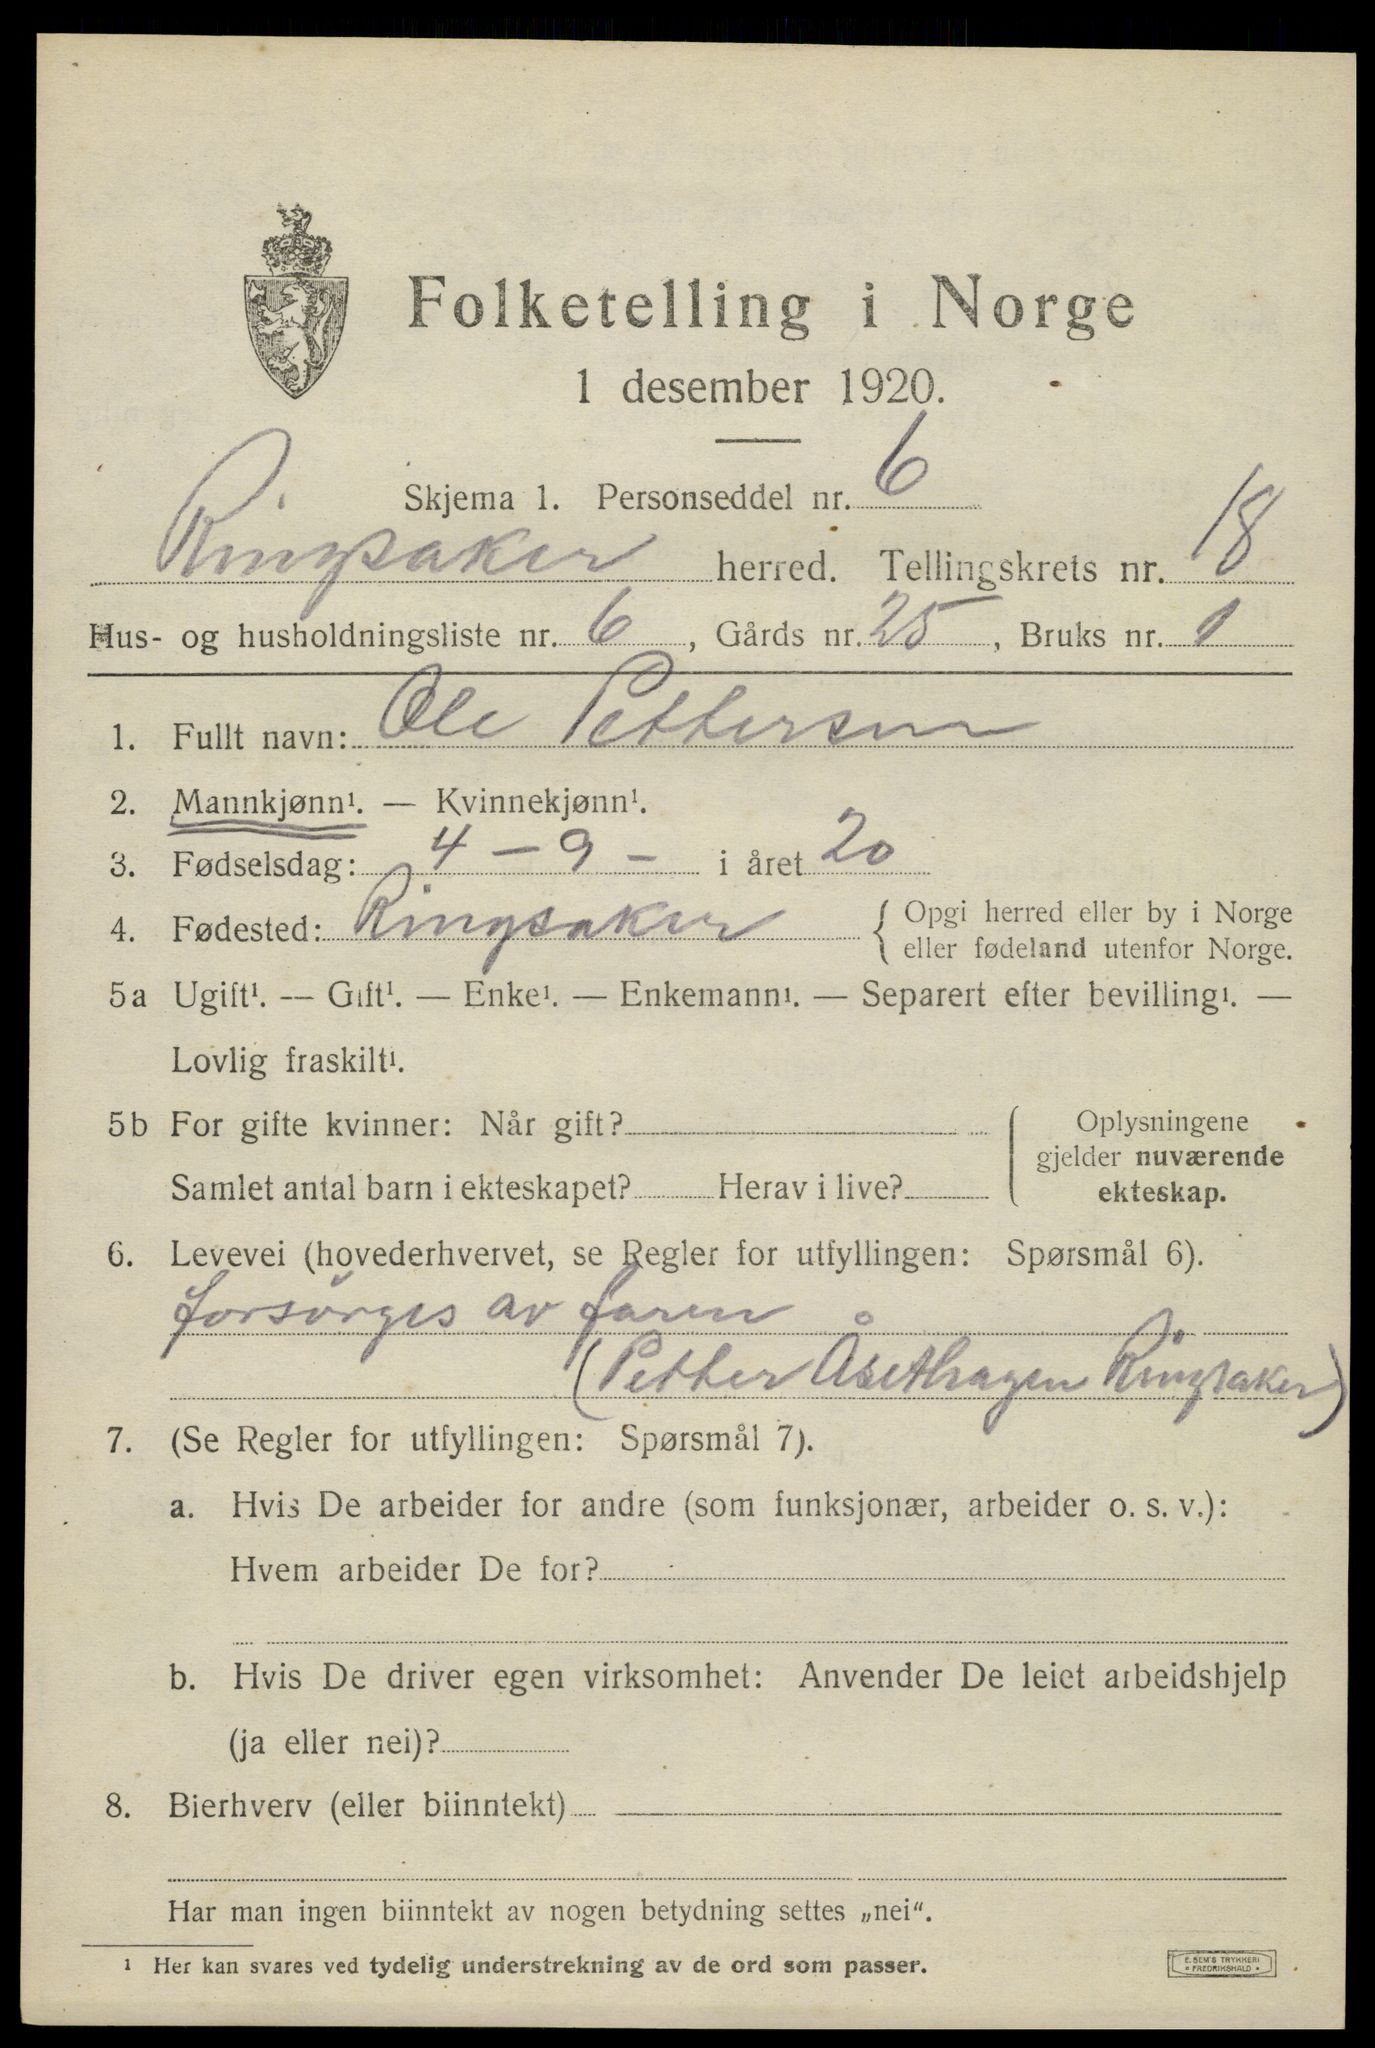 Folketelling i Norge
1 desember 1920.
Skjema 1. Personseddel nr. 6
Ringsaker herred. Tellingskrets nr. 18
Hus- og husholdningsliste nr. 6, Gårds nr. 25, Bruks nr. 1
1. Fullt navn: Ole Pettersen
2. Mannkjønn¹. — Kvinnekjønn¹.
3. Fødselsdag: 4 – 9 – i året 20
4. Fødested: Ringsaker { Opgi herred eller by i Norge
eller fødeland utenfor Norge.
5a Ugift¹. — Gift¹. — Enke¹. — Enkemann¹. — Separert efter bevilling¹. —
Lovlig fraskilt¹.
5b For gifte kvinner: Når gift?
Samlet antal barn i ekteskapet? Herav i live?
Oplysningene
gjelder nuværende
ekteskap.
6. Levevei (hovederhvervet, se Regler for utfyllingen: Spørsmål 6).
forsörges av faren
(Petter Åsethagen Ringsaker)
7. (Se Regler for utfyllingen: Spørsmål 7).
a. Hvis De arbeider for andre (som funksjonær, arbeider o. s. v.):
Hvem arbeider De for?
b. Hvis De driver egen virksomhet: Anvender De leiet arbeidshjelp
(ja eller nei)?
8. Bierhverv (eller biinntekt)
Har man ingen biinntekt av nogen betydning settes „nei“.
¹ Her kan svares ved tydelig understrekning av de ord som passer.
E. SEM'S TRYKKERI
• FREDRIKSHALD •